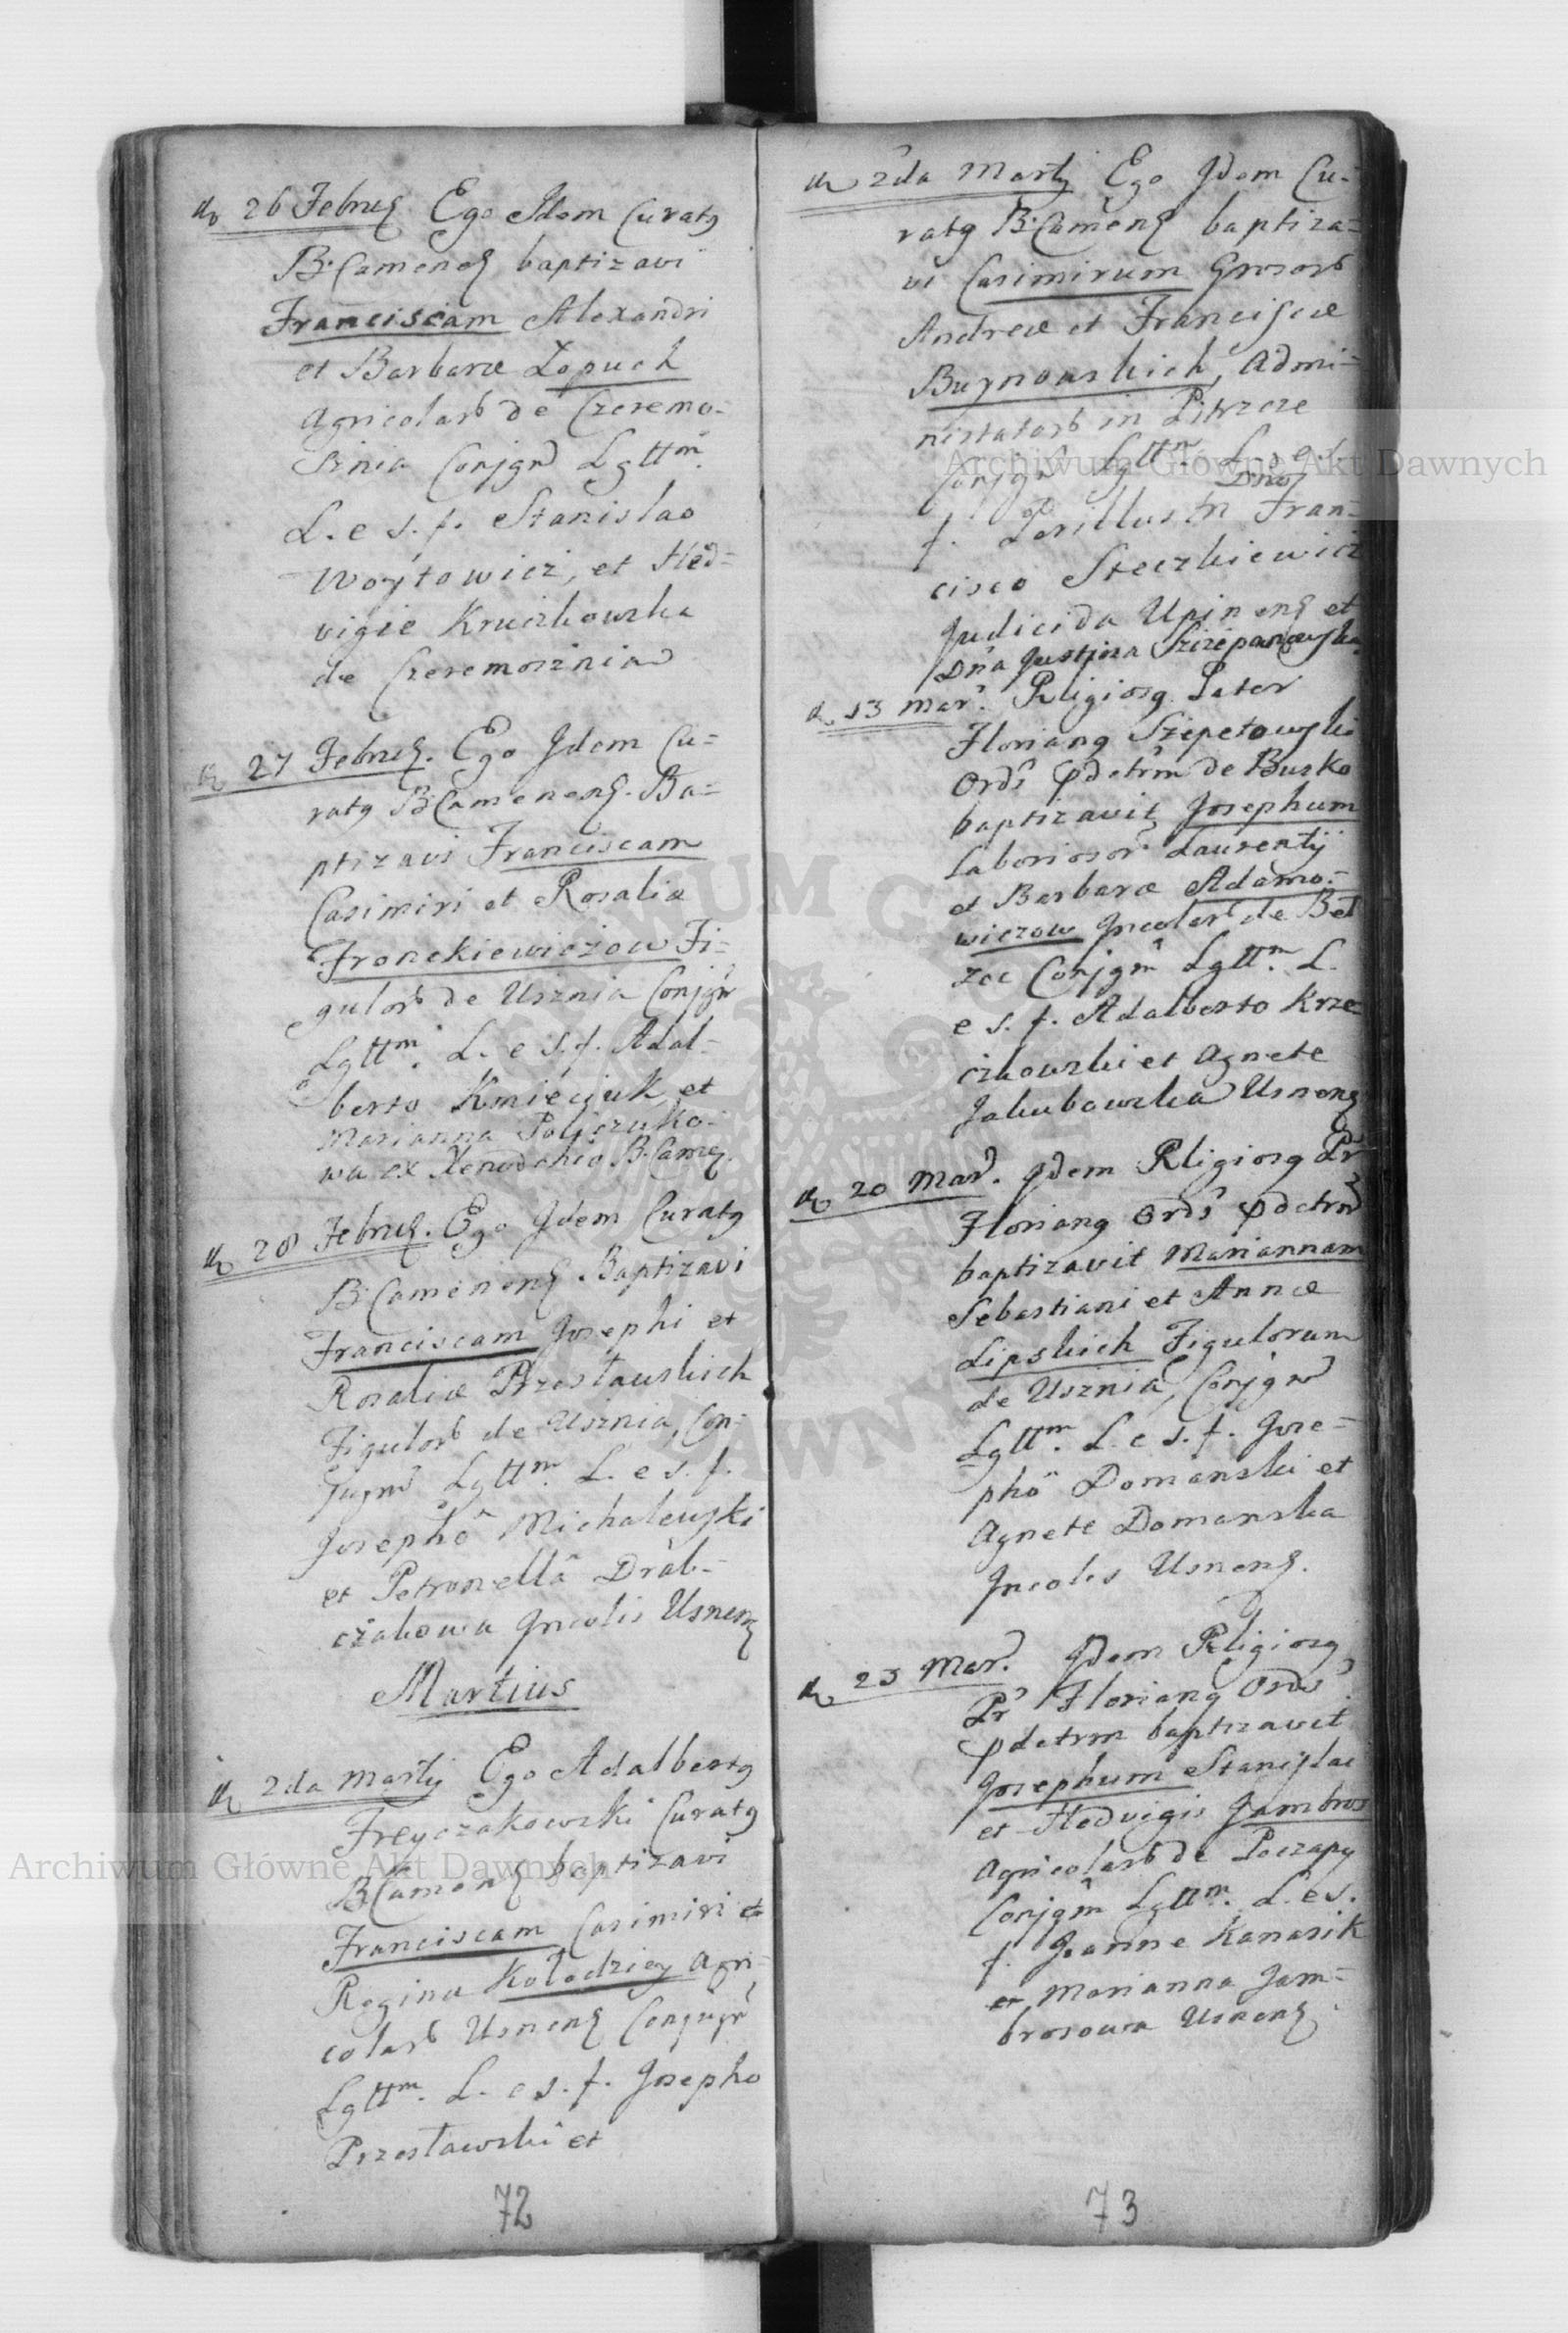 26 Febru Ego Idem Curatq
B: Camenen baptizavi
Franciscam Alexandri
et Barbaræ Lopuch
Agricolar de Czeremo-
sznia Conjgu Lgttm.
L. e s. f. Stanislao
Woytowicz, et Hed-
vigie Kruczkowska
de Czeremosznia
27 Febru. Ego Idem Cu-
ratq B: Camenens. Ba-
ptizavi Franciscam
Casimiri et Rosaliæ
Fronckiewiczow Fi-
gulor de Usznia Conjgu
Lgttm. L. e s. f. Adal-
berto Kmiecjuk et
Marianna
wa ex Xenodohio B. Came.
28 Febru. Ego Idem Curatq
B: Camenens Baptizavi
Franciscam Josephi et
Rosaliæ Przesławskich
Figulor de Usznia, Con-
jugu Lgttm. L. e s. f.
Josephô Michalewski
et Petronellâ Drab-
czakowa Incolis Usnens
Martius
2da Martij Ego Adalbertq
Freyczakowski Curatq
B Camens baptizavi
Franciscam Casimiri et
Regina Kołodziey Agri-
colar Usnens Conjugu
Lgttm. L. e s. f. Josepho
Przesławski et
72
2da Martij Ego Idem Cu-
ratq B: Camens baptiza-
vi Casimirum Gnosor
Andreæ et Franciscæ
Buynowskich, Admi-
nistrator in
Conjgu Lgttm L. e s.
f. Perillustri Dno Fran-
cisco Steczkiewicz
et
Dna Justina Szczepanowska
13 Mar. Rligiosq Pater
Florianq Szepetowski
Ords Pdctrm de Busko
baptizavit Josephum
Laboriosor Laurentij
et Barbaræ Adamo-
wiczow Incolar de Beł
zec Conjgm Lgttm. L.
e s. f. Adalberto Krze
czkowski et Agnete
Jakubowska Usnens
20 Mar. Idem Rligiosq Pr
Florianq Ords Pdctrm
baptizavit Mariannam
Sebastiani et Annæ
Lipskich Figulorum
de Usznia, Conjgu
Lgttm. L. e s. f. Jose-
phô Domanski et
Agnete Domanska
Incolis Usnens.
23 Mar. Idem Rligiosq
Pr Florianq Ords
Pdctrm baptizavit
Josephum Stanislai
et Hedvigis Jambros
Agricolar de Poczapy
Conjgm Lgttm. L. e s.
f. Joanne Kanasik
et Marianna Jam-
brosowa Usnens
73
Archiwum Główne Akt Dawnych
Archiwum Główne Akt Dawnych